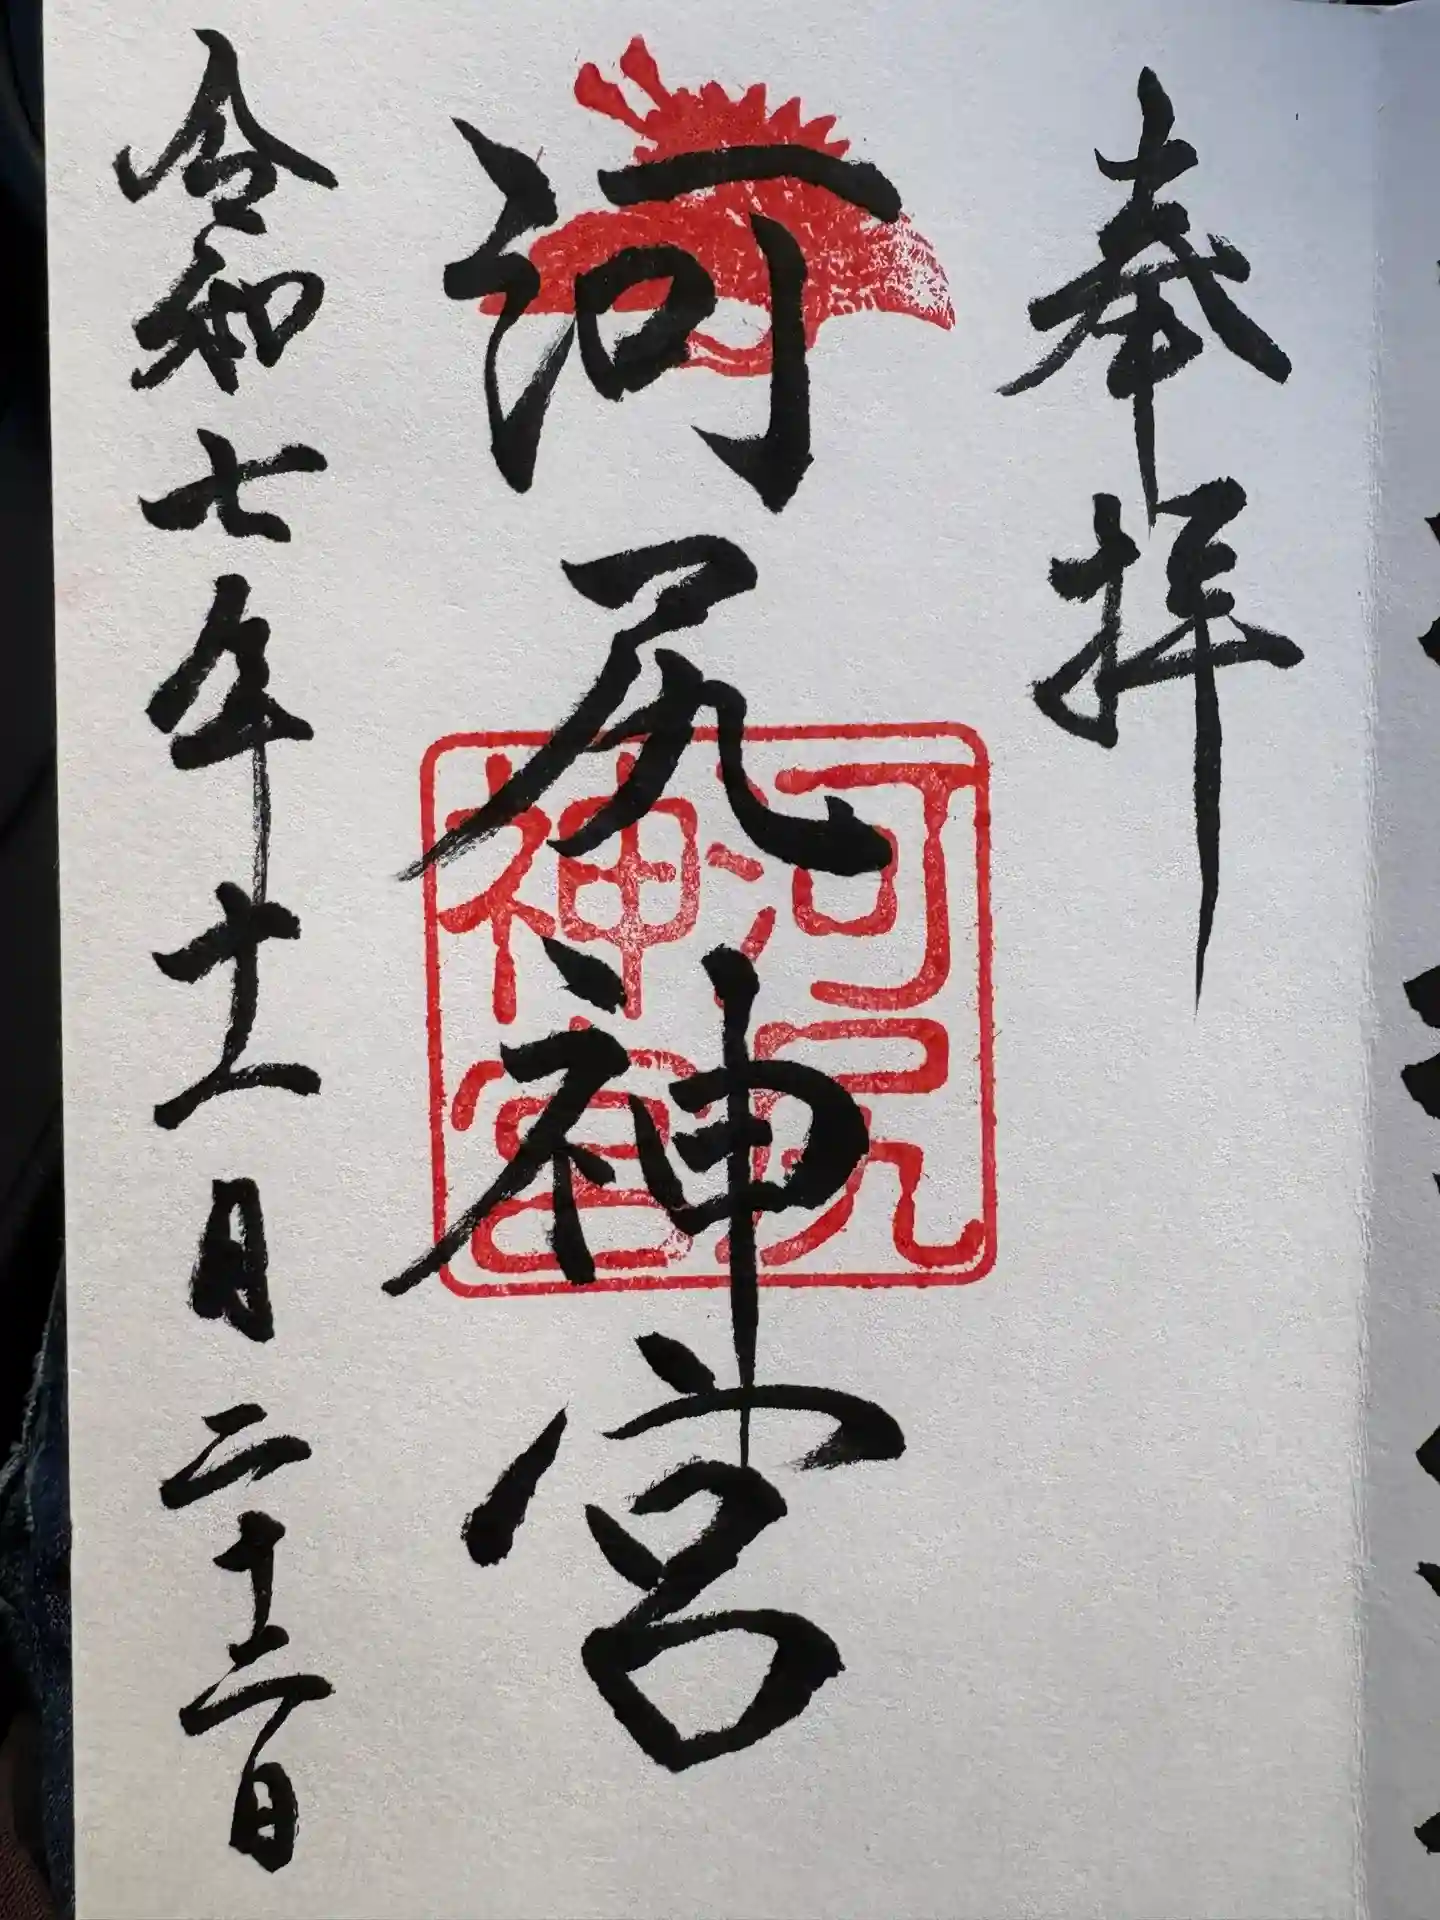 奉拝
河尻神宮
令和七年十一月二十二日
河尻
神宮